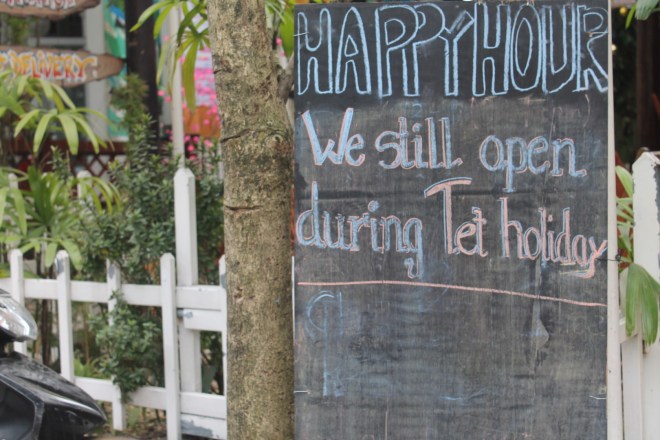 DELIVERY
HAPPY HOUR
We still open
during Tet holiday